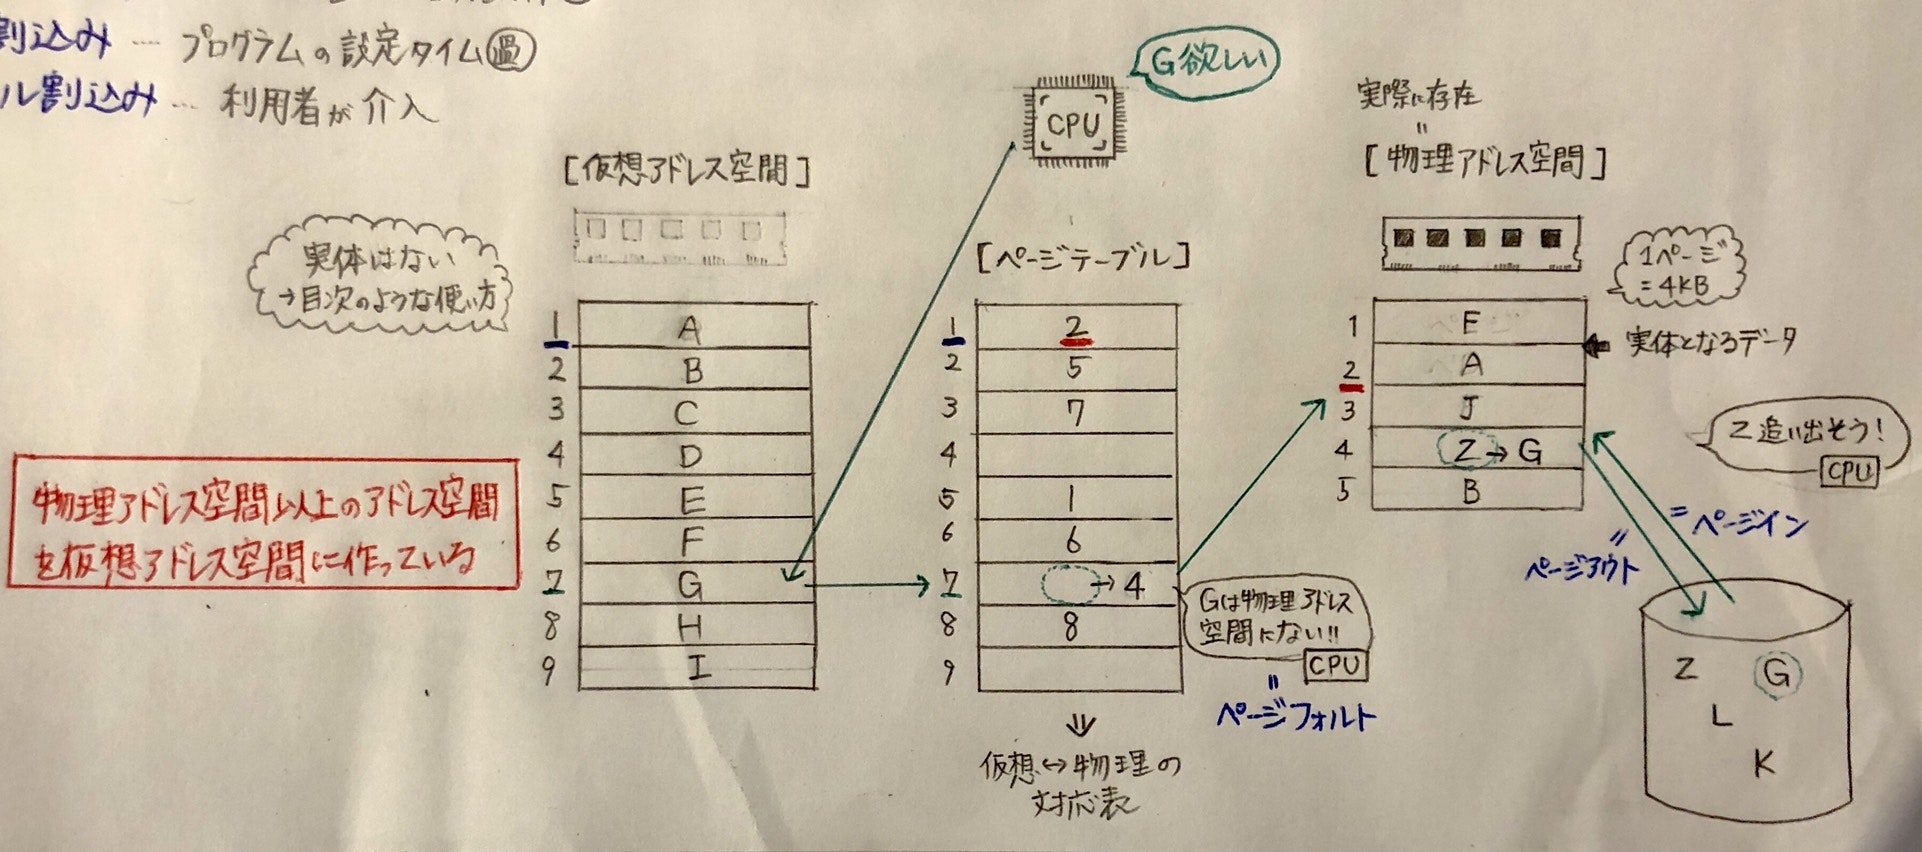 割込み … プログラムの設定タイム過
ル割込み … 利用者が介入
G欲しい
CPU
実際に存在
=
[仮想アドレス空間]
[物理アドレス空間]
実体はない
→目次のような使い方
[ページテーブル]
1ページ
=4KB
1 A
2 B
3 C
4 D
5 E
6 F
7 G
8 H
9 I
1 2
2 5
3 7
4
5 1
6 6
7 →4
8 8
9
1 F
2 A
3 J
4 Z→G
5 B
← 実体となるデータ
Z追い出そう!
CPU
物理アドレス空間以上のアドレス空間
を仮想アドレス空間に作っている
=ページイン
=
ページアウト
Gは物理アドレス
空間にない!!
CPU
=
ページフォルト
⇓
仮想↔物理の
対応表
Z G
L
K